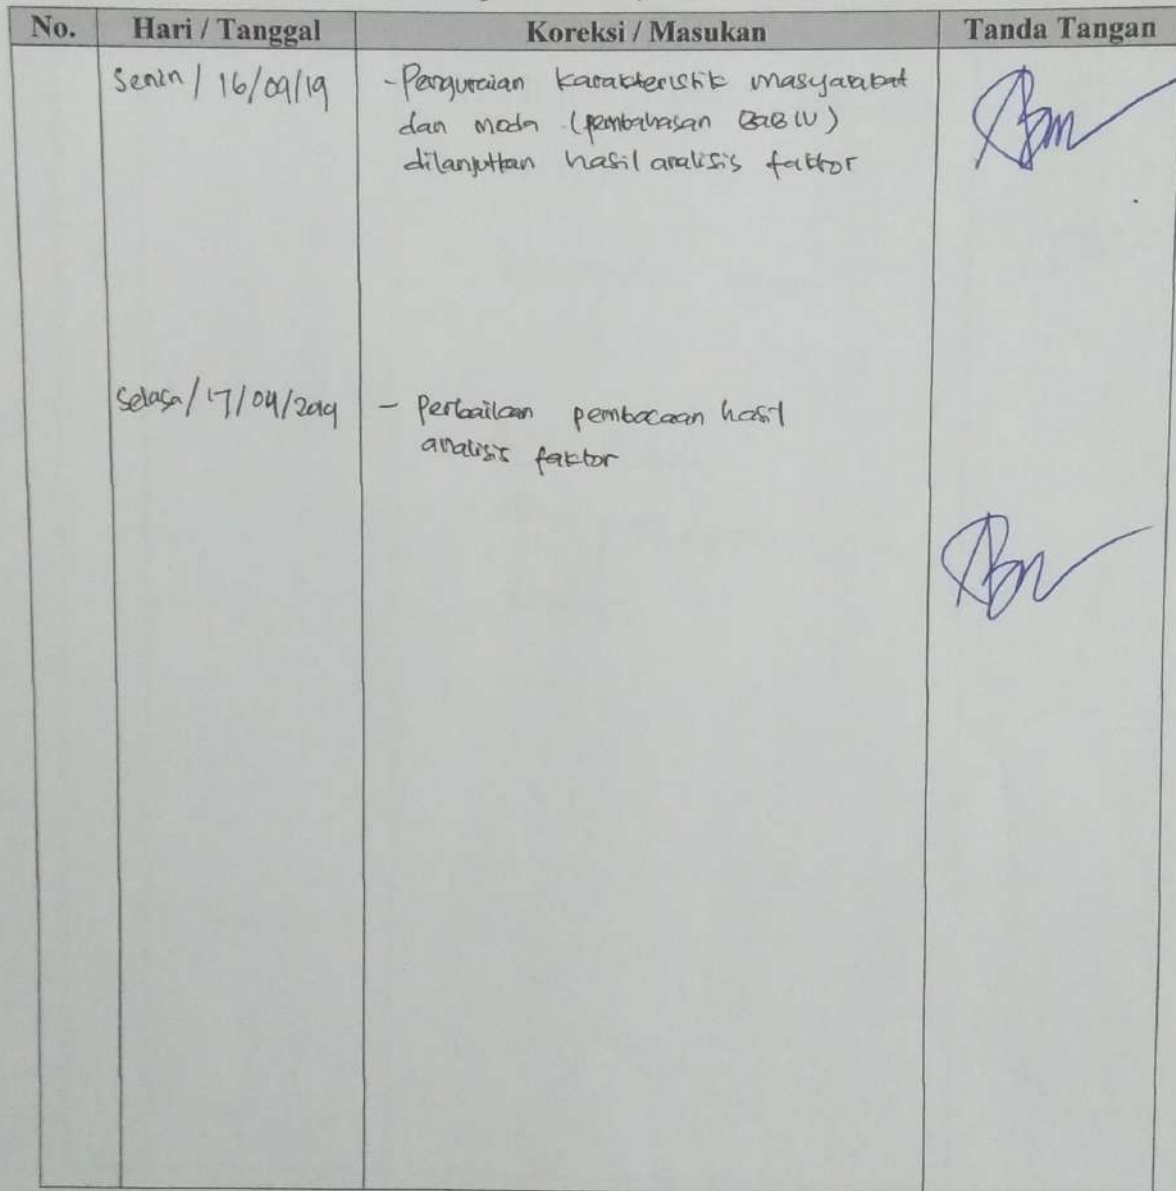 No. Hari / Tanggal Koreksi / Masukan Tanda Tangan
Senin / 16/09/19 - Penguraian karakteristik masyarakat
dan moda (pembahasan BAB IV)
dilanjutkan hasil analisis faktor
Selasa / 17/09/2019 - Perbaikan pembacaan hasil
analisis faktor